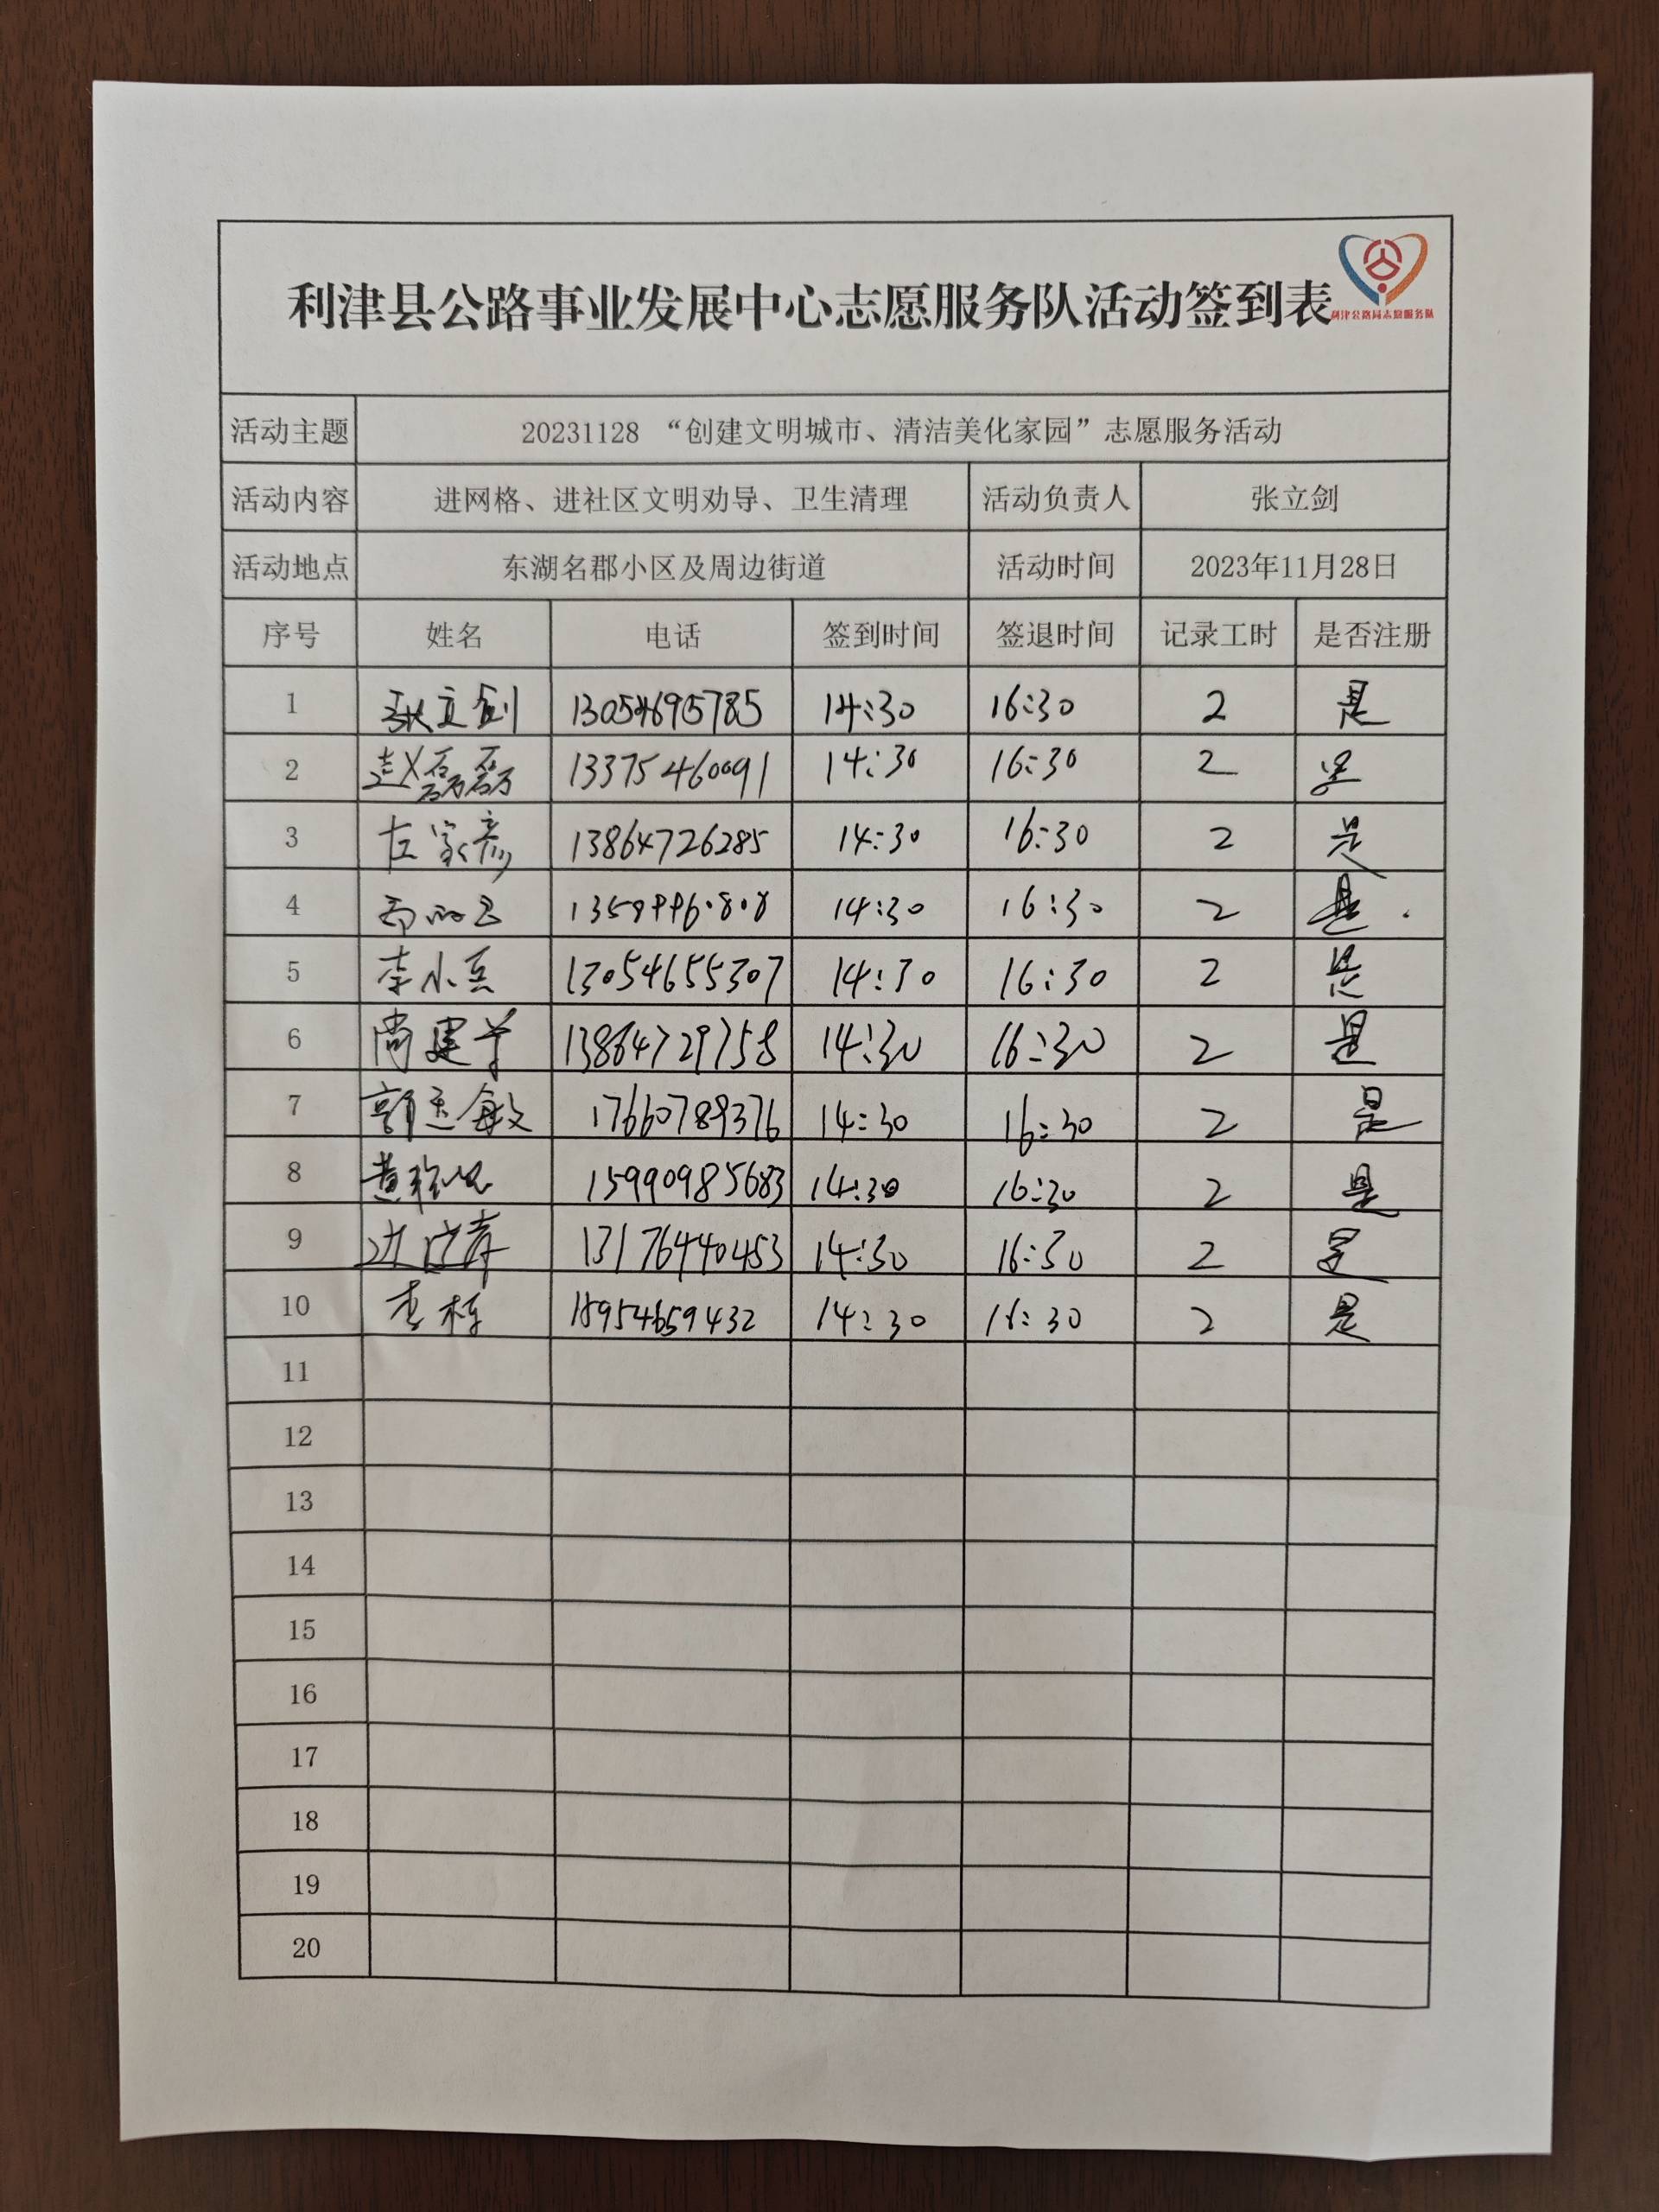 利津县公路事业发展中心志愿服务队活动签到表
利津公路局志愿服务队
活动主题 20231128 “创建文明城市、清洁美化家园”志愿服务活动
活动内容 进网格、进社区文明劝导、卫生清理 活动负责人 张立剑
活动地点 东湖名郡小区及周边街道 活动时间 2023年11月28日
序号 姓名 电话 签到时间 签退时间 记录工时 是否注册
1 张立剑 13054695785 14:30 16:30 2 是
2 赵磊磊 13375460091 14:30 16:30 2 是
3 左家亮 13864726285 14:30 16:30 2 是
4 14:30 16:30 2 是
5 李小兵 13054655307 14:30 16:30 2 是
6 尚建 13864729758 14:30 16:30 2 是
7 敏 17660789376 14:30 16:30 2 是
8 黄 15990985683 14:30 16:30 2 是
9 13176440453 14:30 16:30 2 是
10 李栋 18954659432 14:30 16:30 2 是
11
12
13
14
15
16
17
18
19
20